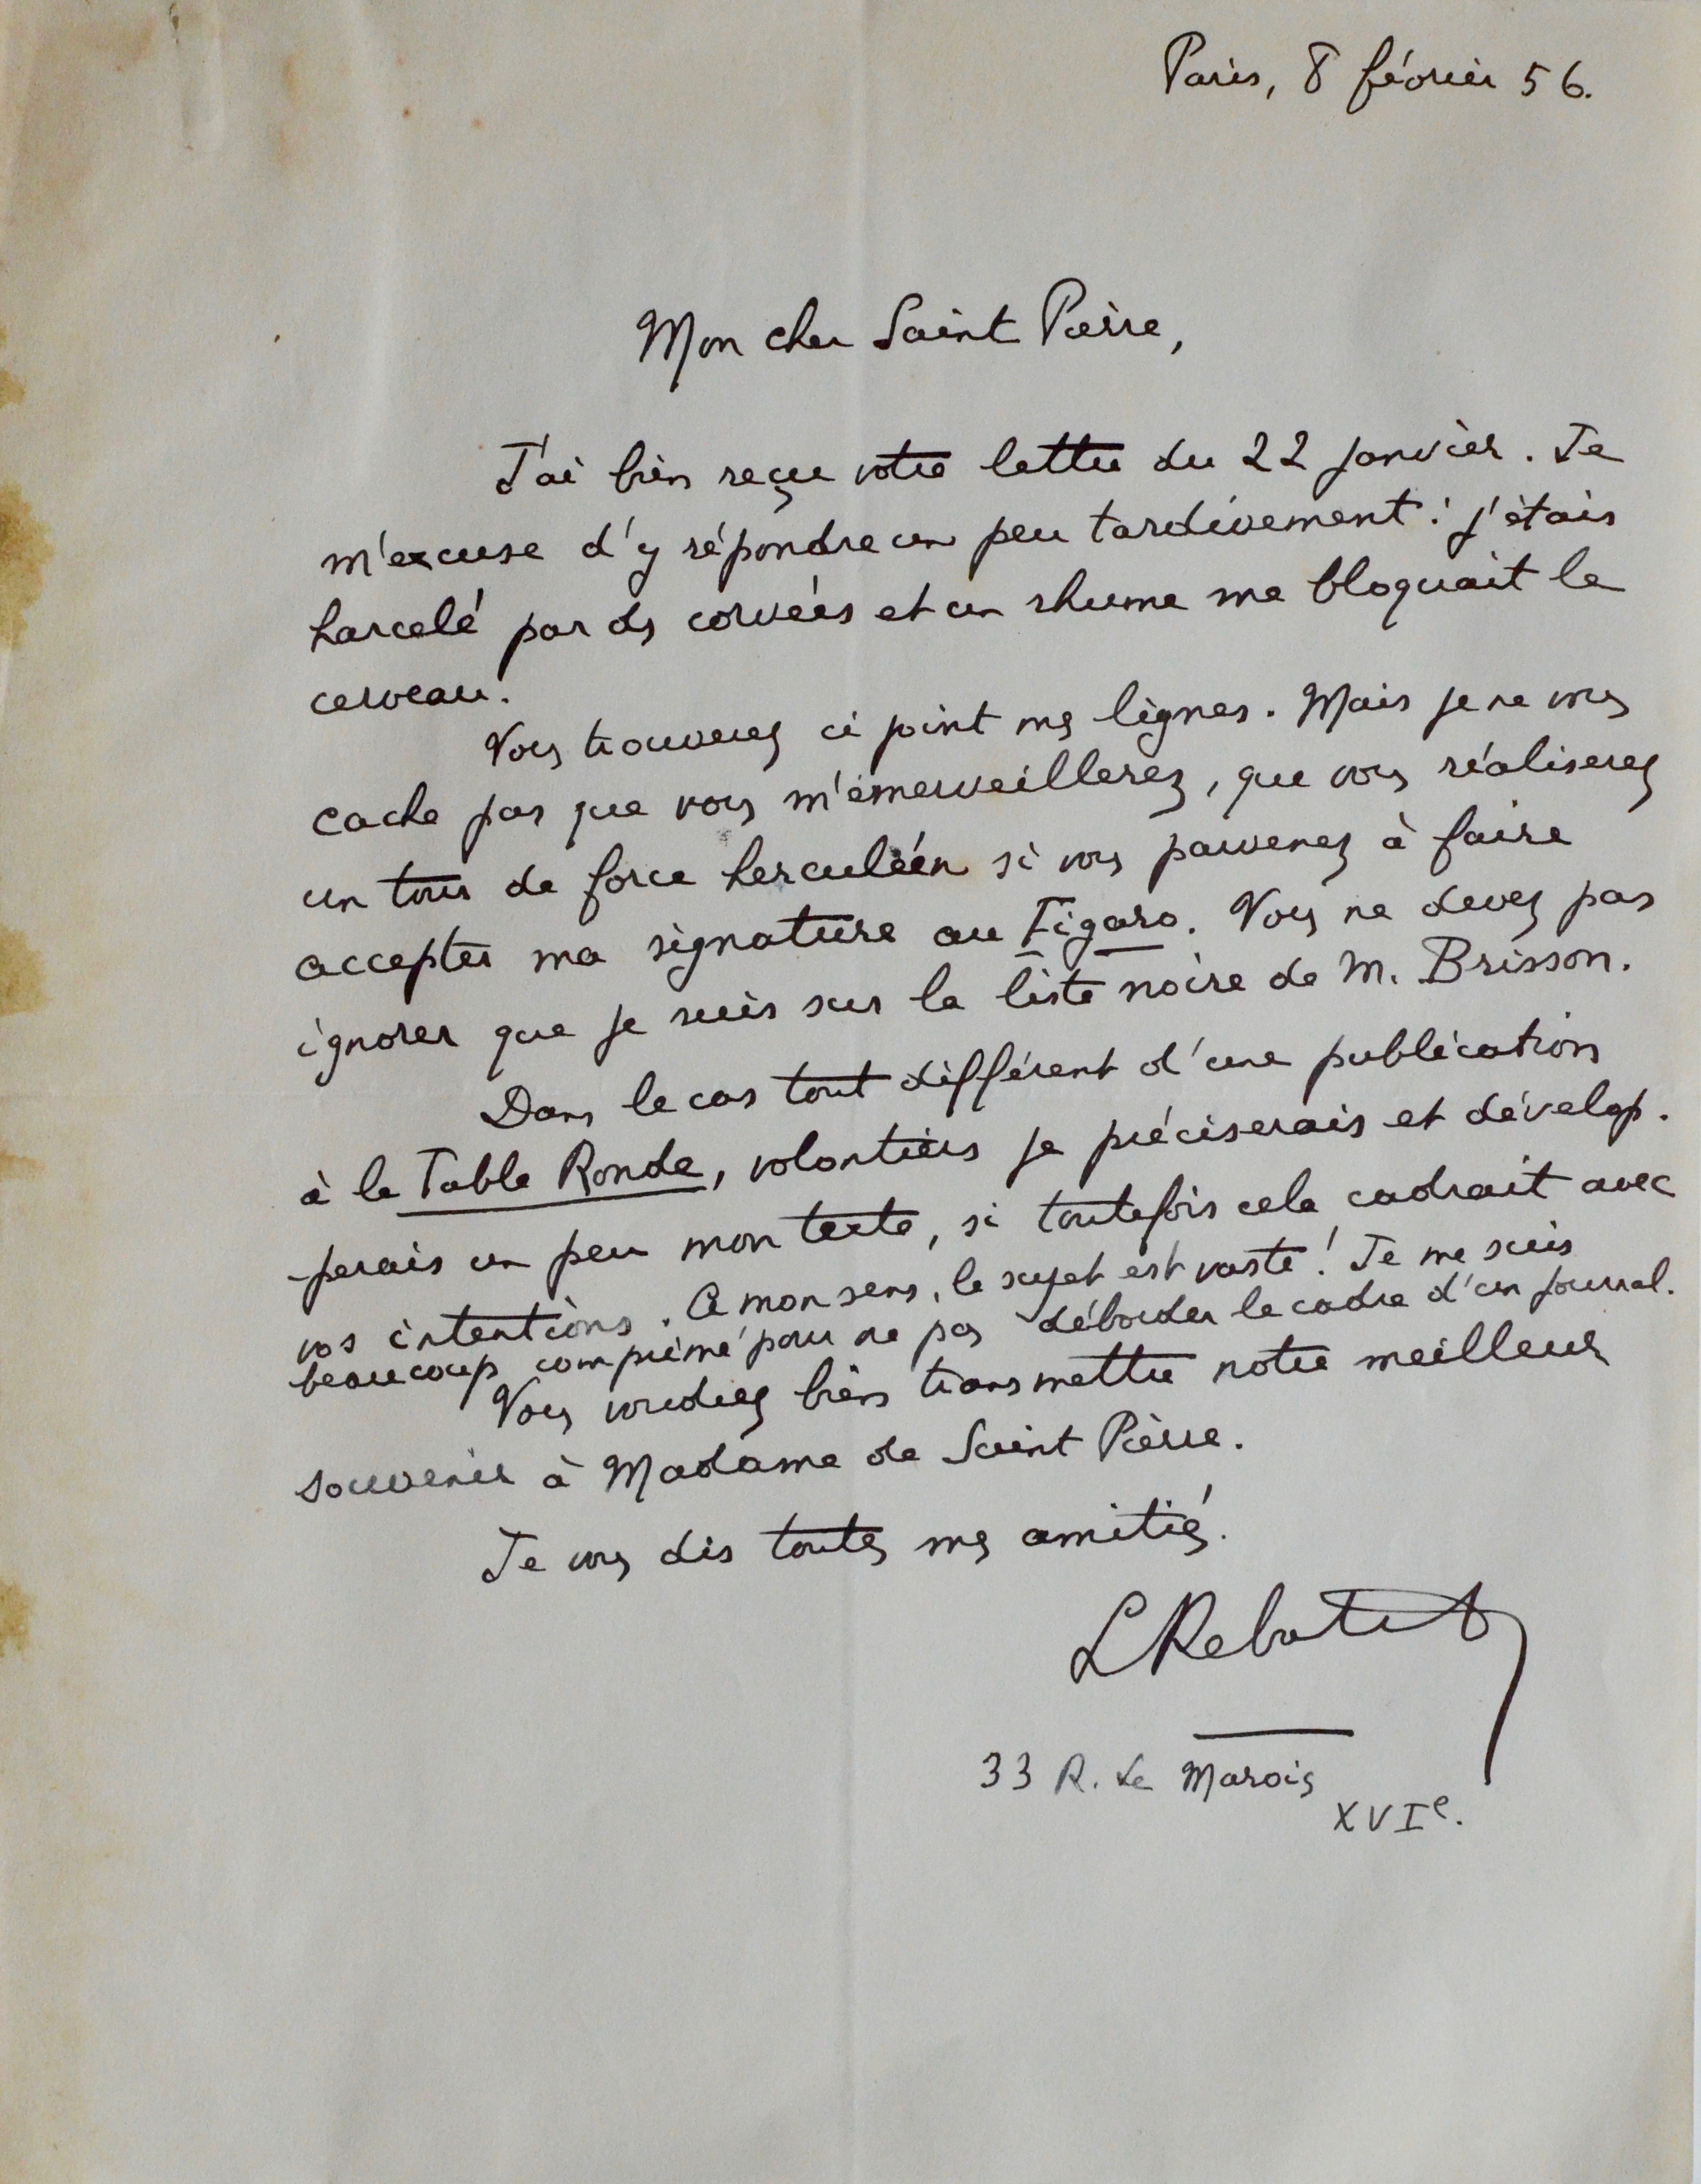 Paris, 8 février 56.
Mon cher Saint Pierre,
J'ai bien reçu votre lettre du 22 janvier. Je
m'excuse d'y répondre un peu tardivement : j'étais
harcelé par des corvées et un rhume me bloquait le
cerveau.
Vous trouverez ci joint mes lignes. Mais je ne vous
cache pas que vous m'émerveillerez, que vous réaliserez
un tour de force herculéen si vous parvenez à faire
accepter ma signature au Figaro. Vous ne devez pas
ignorer que je suis sur la liste noire de M. Brisson.
Dans le cas tout différent d'une publication
à la Table Ronde, volontiers je préciserais et dévelop-
perais un peu mon texte, si toutefois cela cadrait avec
vos intentions. A mon sens, le sujet est vaste ! Je me suis
beaucoup comprimé pour ne pas déborder le cadre d'un journal.
Vous voudrez bien transmettre notre meilleur
souvenir à Madame de Saint Pierre.
Je vous dis toutes mes amitiés.
L Rebatet
33 R. Le Marois
XVIe.